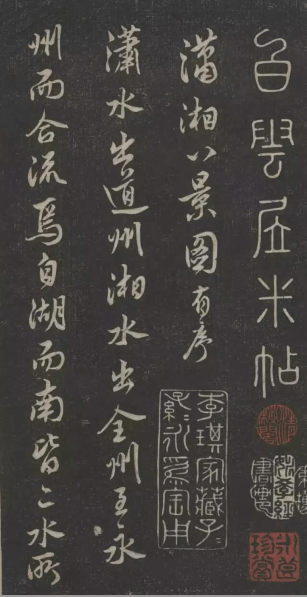 白雲居米帖
瀟湘八景图有序
瀟水出道州湘水出全州至永
州而合流焉自湖而南皆二水所
李琪家藏子
孫永寶用